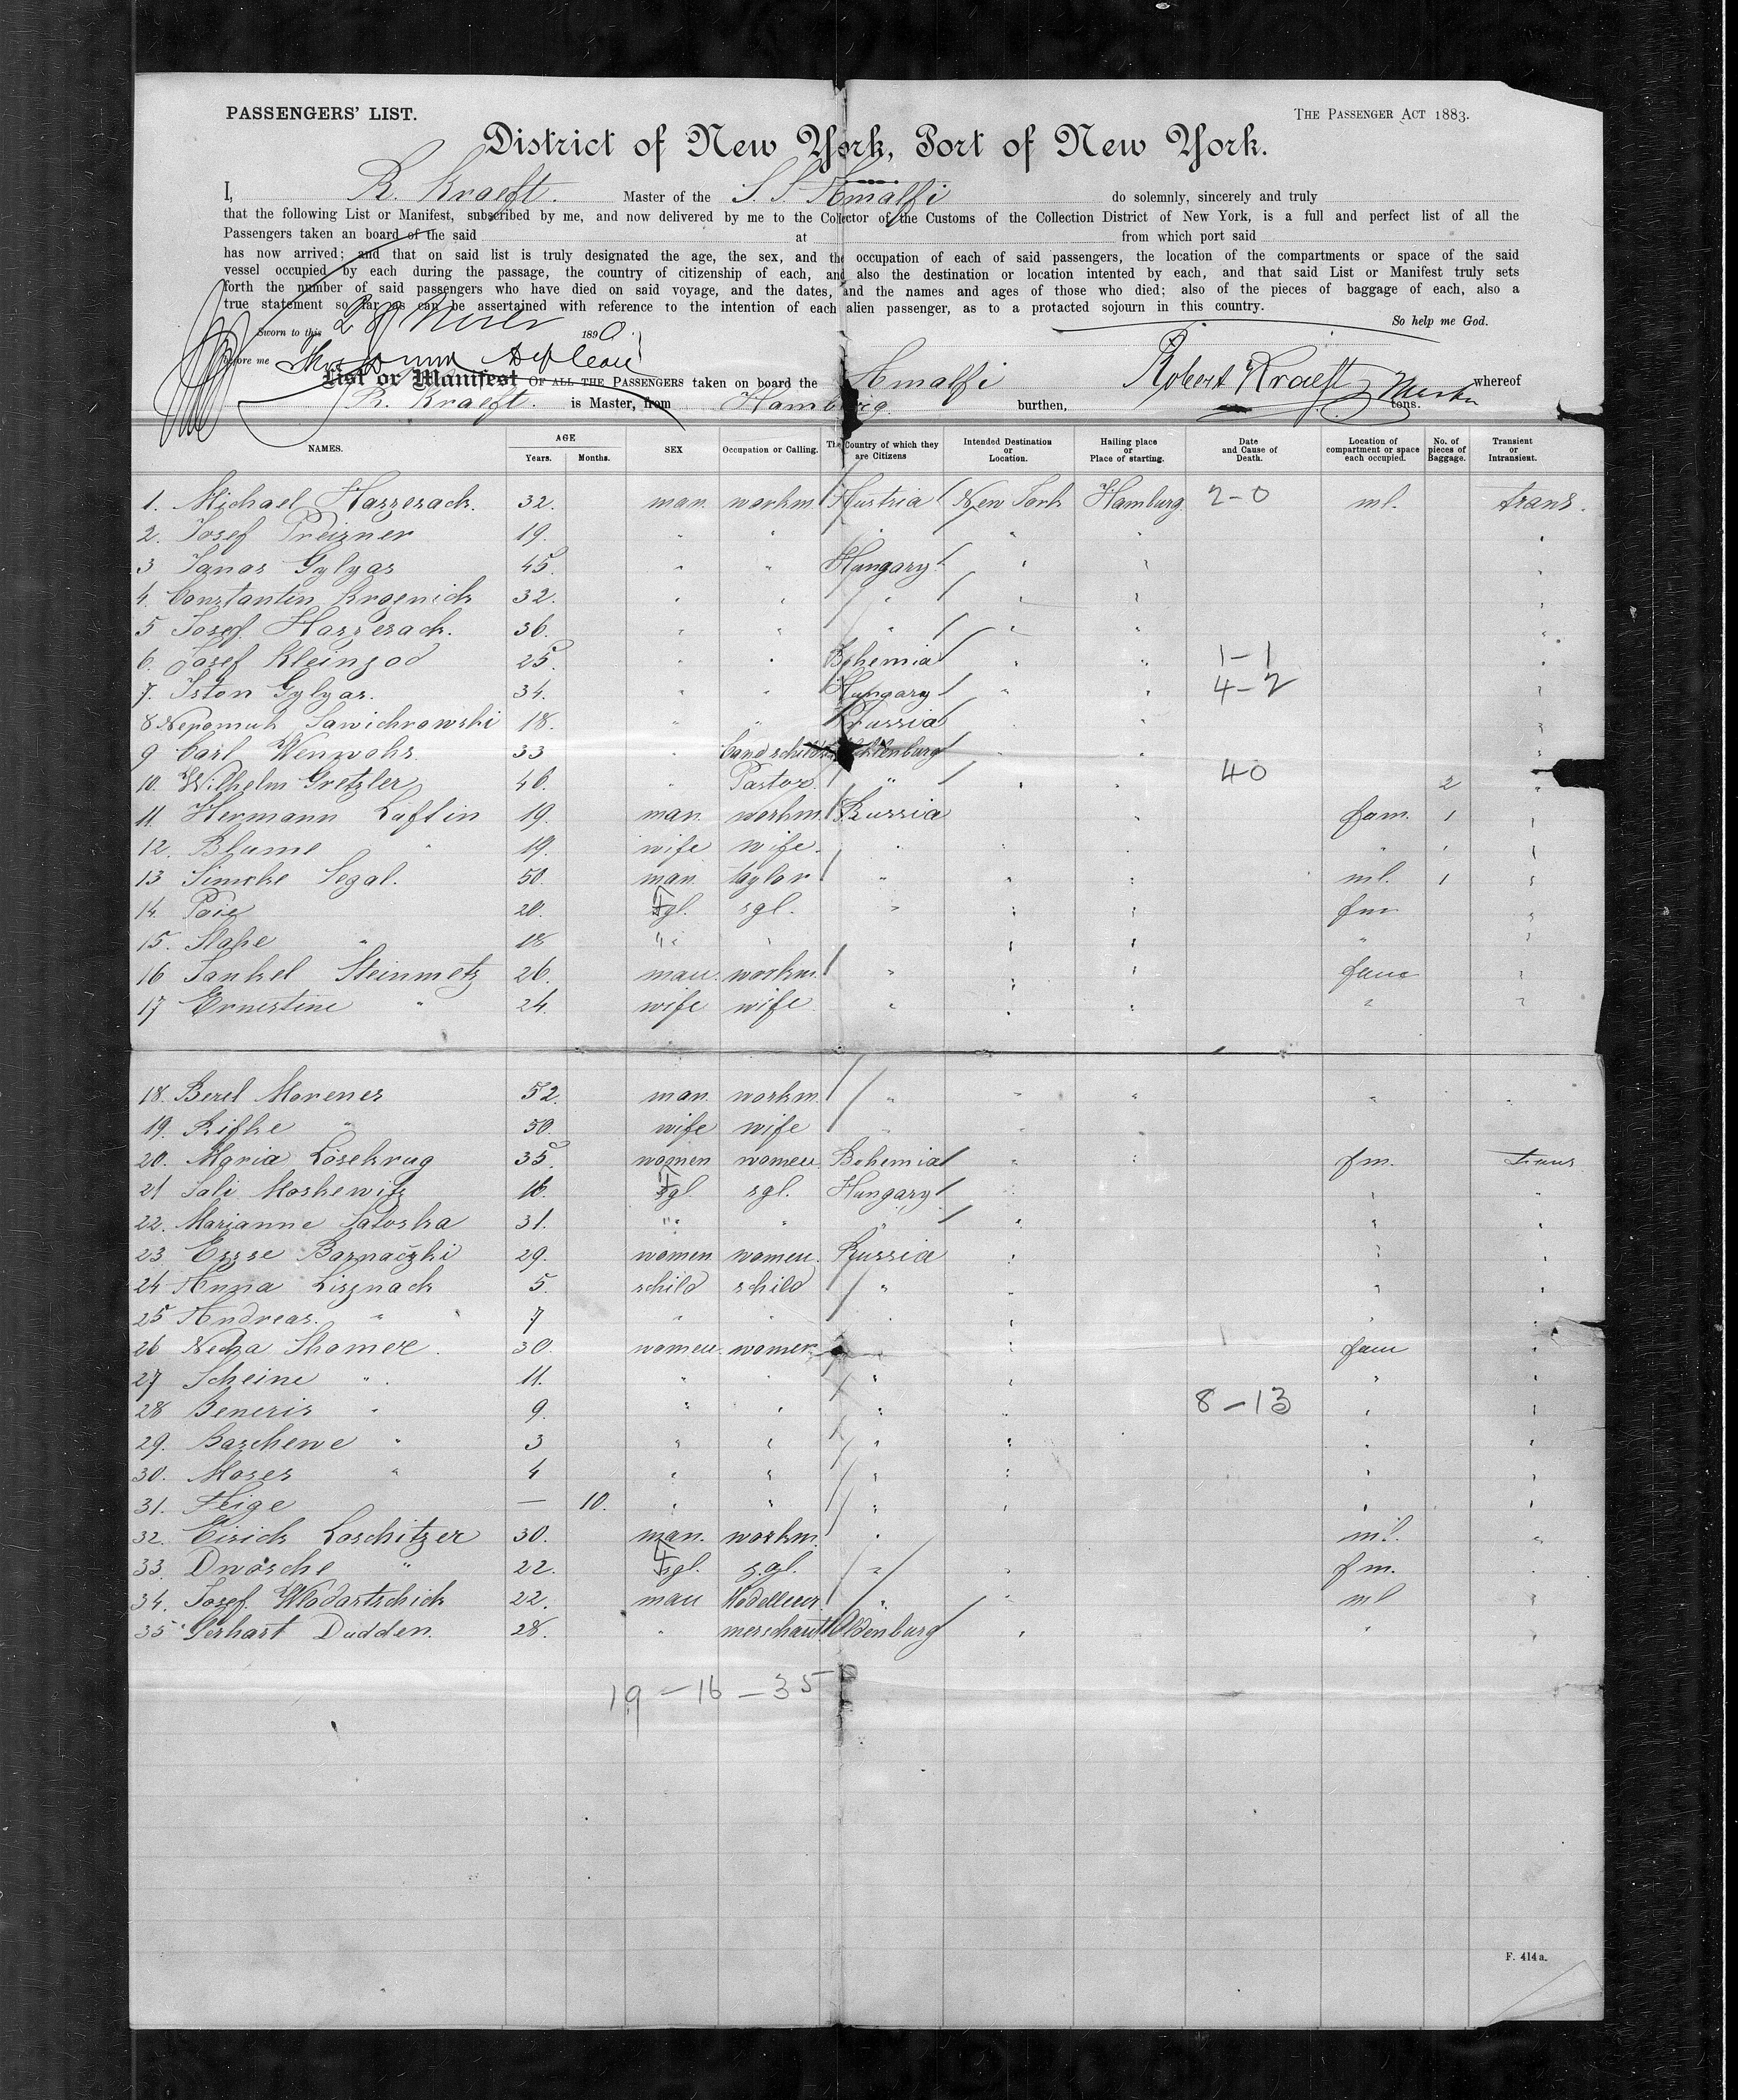 PASSENGERS' LIST.
THE PASSENGER ACT 1883.
District of New York, Port of New York.
I, R. Kraeft. Master of the S. S. Amalfi do solemnly, sincerely and truly
that the following List or Manifest, subscribed by me, and now delivered by me to the Collector of the Customs of the Collection District of New York, is a full and perfect list of all the
Passengers taken an board of the said at from which port said
has now arrived; and that on said list is truly designated the age, the sex, and the occupation of each of said passengers, the location of the compartments or space of the said
vessel occupied by each during the passage, the country of citizenship of each, and also the destination or location intented by each, and that said List or Manifest truly sets
forth the number of said passengers who have died on said voyage, and the dates, and the names and ages of those who died; also of the pieces of baggage of each, also a
true statement so far as can be assertained with reference to the intention of each alien passenger, as to a protacted sojourn in this country.
So help me God.
Sworn to this 28 1890
before me
Robert Kraeft Master
List or Manifest OF ALL THE PASSENGERS taken on board the Amalfi whereof
R. Kraeft. is Master, from Hamburg burthen, tons.
NAMES. AGE Years. Months. SEX Occupation or Calling. The Country of which they are Citizens Intended Destination or Location. Hailing place or Place of starting. Date and Cause of Death. Location of compartment or space each occupied. No. of pieces of Baggage. Transient or Intransient.
1. Michael Harzesack. 32. man. workm. Austria New York Hamburg. 2-0 ml. trans.
2. Josef Preizner 19. " " " " " "
3 Janos Gylyas 45. " " Hungary " " "
4. Constantin Krognick 32. " " " " " "
5 Josef. Harzesack. 36. " " " " " "
6. Josef Kleinzod 25. " " Bohemia " " 1-1 "
7. Iston Gylyas. 34. " " Hungary " " 4-2 "
8 Nepomuk Sawichrowski 18. " " Prussia " " "
9 Carl Wenwohs. 33 " " " "
10. Wilhelm Gretzler 46. " Pastor. " " " 40 2 "
11. Hermann Laftin 19. man. workm. Russia " fam. 1 "
12. Blume " 19. wife wife. " " " " " "
13 Simche Segal. 50. man. taylor " " " ml. 1 "
14. Paie 20. sgl. sgl. " " " fm "
15. Slahe " 18 " " " " " "
16 Jankel Steinmetz 26. man. workm. " " " fam "
17 Ernestine " 24. wife wife " " " " "
18. Berel Morener 52. man. workm. " " " " "
19. Rifke " 50. wife wife " "
20. Maria Lösekrug 35. women women Bohemia " " fm. trans
21 Sali Moskewitz 16. sgl. sgl. Hungary " " "
22. Marianne Satoska 31. " " " " " "
23 Essse Barnaczki 29. women women. Russia " " "
24 Anna Lisznack 5. schild schild " " " "
25 Andreas. " 7 " " " " " "
26 Necha Shomer. 30. women. women " fam "
27 Scheine ". 11. " " " " " "
28 Beneris " 9. " " " " 8-13 " "
29. Baschewe " 3 " " " " " "
30. Moses " 4 " " " " " "
31. Feige — 10. " " " " " "
32. Eisick Loschitzer 30. man. workm. " ml. "
33. Dwosche " 22. sgl. sgl. " " fm. "
34. Josef. Wlodartschick 22. man Modelleur. " " ml "
35 Gerhart Dudden. 28. " merschant Oldenburg " " "
19 - 16 - 35
F. 414a.